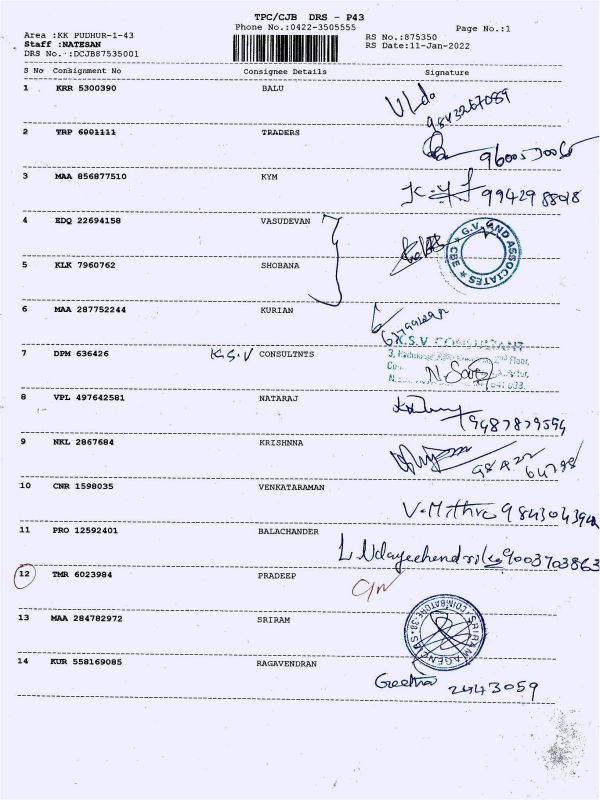 TPC/CJB DRS - P43
Phone No.:0422-3505555
Page No.:1
Area :KK PUDHUR-1-43
RS No.:875350
Staff :NATESAN
RS Date:11-Jan-2022
DRS No. :DCJB87535001
S No Consignment No Consignee Details Signature
1 KRR 5300390 BALU
9843267089
2 TRP 6001111 TRADERS
3 MAA 856877510 KYM
9942988018
4 EDQ 22694158 VASUDEVAN
G.V. AND ASSOCIATES * CBE *
5 KLK 7960762 SHOBANA
6 MAA 287752244 KURIAN
7 DPM 636426 K.S.V CONSULTNTS
K.S.V CONSULTANT
3, Floor,
8 VPL 497642581 NATARAJ
9487879594
9 NKL 2867684 KRISHNNA
10 CNR 1598035 VENKATARAMAN
V.Mithra
11 PRO 12592401 BALACHANDER
9003703863
12 TMR 6023984 PRADEEP
13 MAA 284782972 SRIRAM
SRIRAM AGENCIES COIMBATORE-38
14 KUR 558169085 RAGAVENDRAN
Geetha 2443059